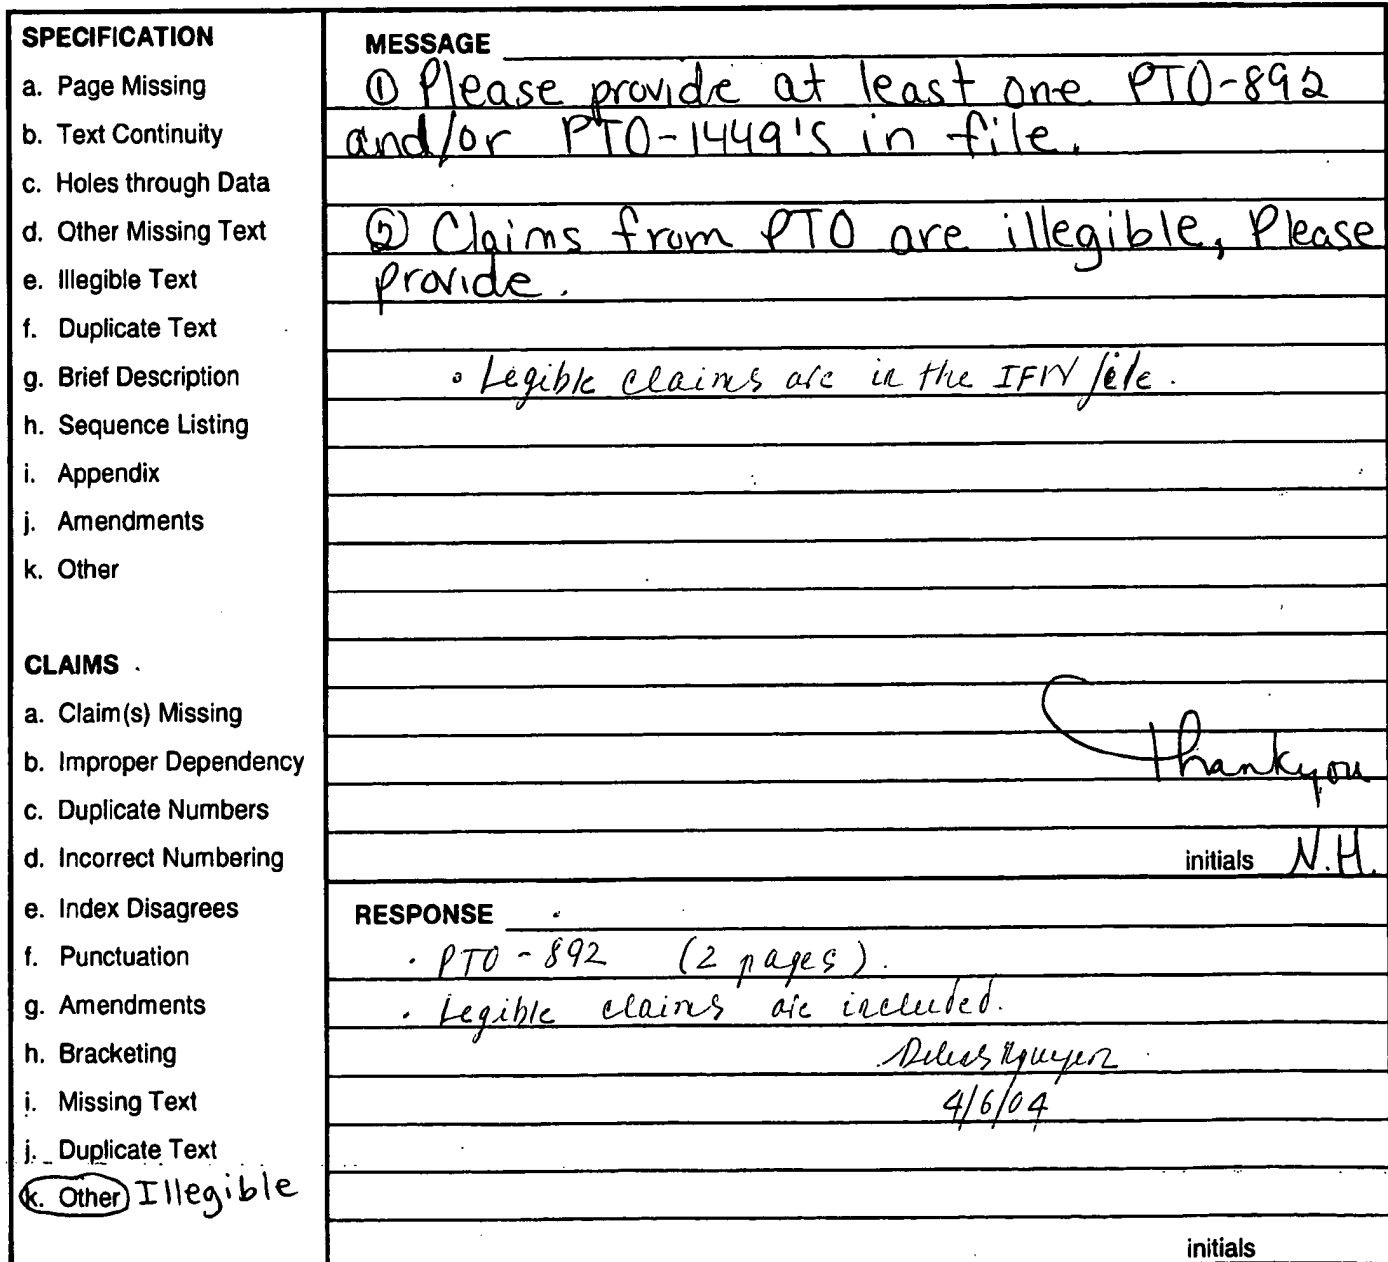 SPECIFICATION
a. Page Missing
b. Text Continuity
c. Holes through Data
d. Other Missing Text
e. Illegible Text
f. Duplicate Text
g. Brief Description
h. Sequence Listing
i. Appendix
j. Amendments
k. Other
CLAIMS
a. Claim(s) Missing
b. Improper Dependency
c. Duplicate Numbers
d. Incorrect Numbering
e. Index Disagrees
f. Punctuation
g. Amendments
h. Bracketing
i. Missing Text
j. Duplicate Text
k. Other Illegible
MESSAGE
① Please provide at least one PTO-892
and/or PTO-1449's in file.
② Claims from PTO are illegible, Please
provide.
• Legible claims are in the IFW file.
Thankyou
initials N.H.
RESPONSE
• PTO-892 (2 pages).
• Legible claims are included.
Nguyen
4/6/04
initials